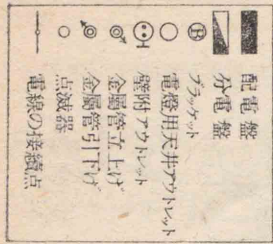 配電盤
分電盤
ブラケット
電燈用天井アウトレット
壁附アウトレット
金属管立上げ
金属管引下げ
点滅器
電線の接続点